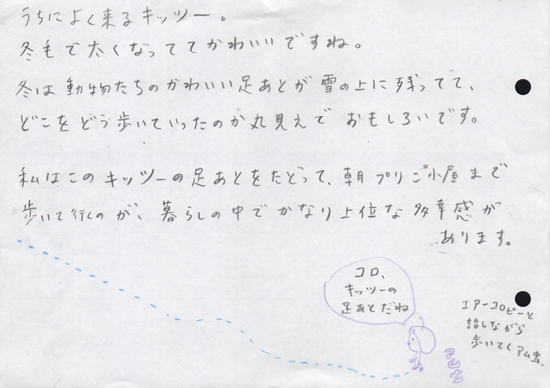 うちによく来るキッツー。
冬毛で太くなっててかわいいですね。
冬は動物たちのかわいい足あとが雪の上に残ってて、
どこをどう歩いていったのか丸見えでおもしろいです。
私はこのキッツーの足あとをたどって、朝プリご小屋まで
歩いて行くのが、暮らしの中でかなり上位な多幸感が
あります。
コロ、
キッツーの
足あとだね
エアーコロピーと
話しながら
歩いてくアム虫、